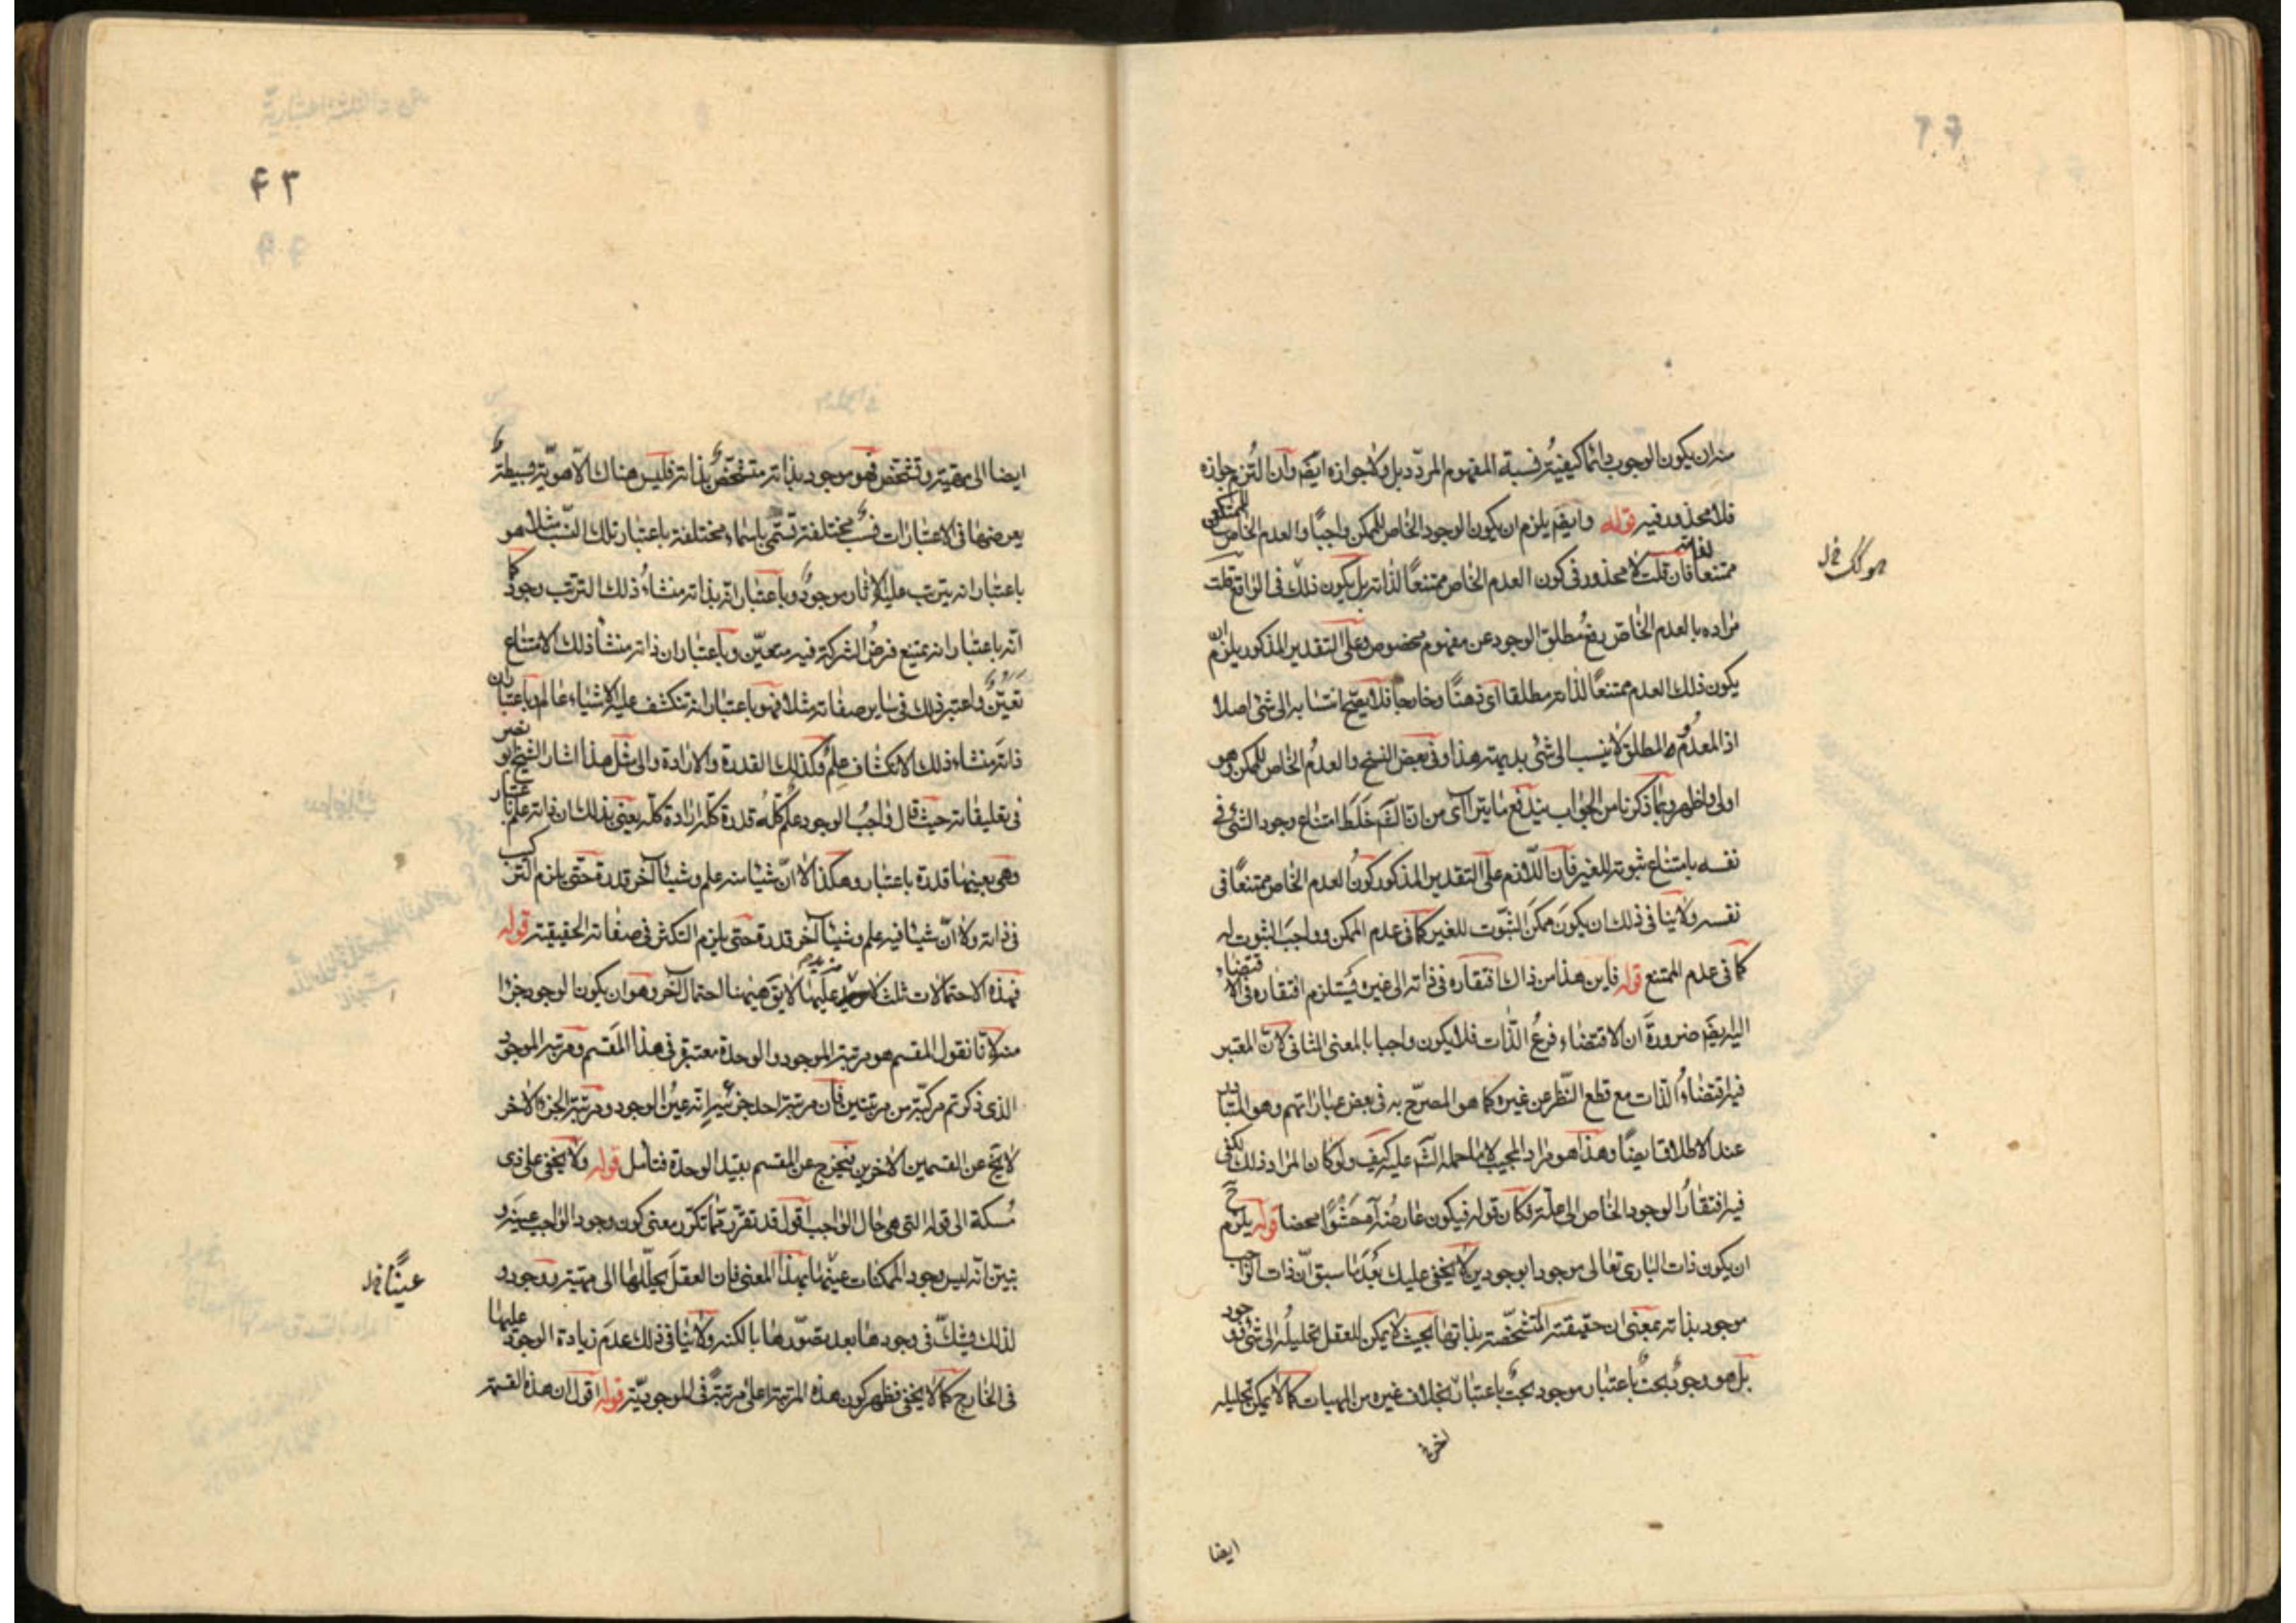 منه ان يكون الوجوب دائما كيفية نسبة المفهوم المردد بل ولا جوازه ايضم وان التزم جوازه
فلا محذور فيه قوله وايضم يلزم ان يكون الوجود الخاص للممكن واجبًا والعدم الخاص للممكن
ممتنعا لذاته فان قلت لا محذور فى كون العدم الخاص ممتنعًا لذاته بل يكون ذلك فى الواقع قلت
مراده بالعدم الخاص رفع مطلق الوجود عن مفهوم مخصوص وعلى التقدير المذكور يلزم ان
يكون ذلك العدم ممتنعًا لذاته مطلقا اى ذهنًا وخارجا فلا يصح انتسابه الى شئ اصلا
اذ المعدوم المطلق لا ينسب الى شئ بديهة هذا وفى بعض النسخ والعدم الخاص للممكن وهو
اولى واظهر وبما ذكرنا من الجواب يندفع ما يتراآى من انّ القم خَلَطَ امتناع وجود الشئ فى
نفسه بامتناع ثبوته للغير فان اللازم على التقدير المذكور كونُ العدم الخاص ممتنعًا فى
نفسه ولا ينافى ذلك ان يكون ممكنَ الثبوت للغير كما فى عدم الممكن وواجبَ الثبوت له
كما فى عدم الممتنع قوله فاين هذا من ذاك افتقاره فى ذاته الى غيره يستلزم افتقاره فى الاقتضاء
اليه ايضم ضرورةَ ان الاقتضاء فرعُ الذّات فلا يكون واجبا بالمعنى الثانى لانّ المعتبر
فيه اقتضاءُ الذات مع قطع النّظر عن غيره كما هو المصرّح به فى بعض عباراتهم وهو المتبادر
عند الاطلاق ايضًا وهذا هو مراد المجيب لا ما حمله الشم عليه كيف ولو كان المراد ذلك لكفى
فيه افتقارُ الوجود الخاص الى علّة فكان قوله فيكون عارضُه آه حَشْوًا محضا قوله يلزم ح
ان يكون ذات البارى تعالى موجودا بوجودين لا يخفى عليك بَعْدَ ما سبق انّ ذات الواجب
موجود بذاته بمعنى ان حقيقته المتشخّصة بذاتها بحيث لا يمكن للعقل تحليلُه الى شئ ووجود
بل هو وجودٌ بحتٌ باعتبار موجود بحتٌ باعتبار بخلاف غيره من المهيات كما لا يمكن تحليله
اخر
ايضا
٤٣
ايضا الى مهية وتشخص فهو موجود بذاته متشخّصٌ بذاته فليس هناك الّا هويّة بسيطةٌ
يعرضها فى الاعتبارات نسبٌ مختلفة تسمّى باسماء مختلفة باعتبار تلك النّسب مثلا هو
باعتبار انه يترتب عليه الآثار موجودٌ وباعتبار انّه بذاته منشاءُ ذلك الترتب وجود كما
انّه باعتبار انه يمتنع فرضُ الشركة فيه متعيّن وباعتبار ان ذاته منشأ ذلك الامتناع
تعيّنٌ واعتبر ذلك فى ساير صفاته مثلا فهو باعتبار انه تنكشف عليه الاشياء عالم وباعتبار ان
ذاته منشاء ذلك الانكشاف علمٌ وكذلك القدرة والارادة والى مثل هذا اشار الشيخ ابو نصر
فى تعليقاته حيث قال واجبُ الوجود علم كلُّه قدرة كلّه ارادة كلّه يعنى بذلك ان ذاته علم باعتبار
وهى بعينها قدرة باعتبار وهكذا لا انّ شيئا منه علم وشيئا آخر قدرة حتّى يلزم التركب
فى ذاته ولا انّ شيئا فيه علم وشيئا آخر قدرة حتى يلزم التكثر فى صفاته الحقيقية قوله
فهذه الاحتمالات ثلث لا مزيد عليها لا يقم هيهنا احتمال آخر وهو ان يكون الوجود جزا
منه لانّا نقول المقسم هو مرتبة الموجود والوحدة معتبرة فى هذا المَقسم ومرتبة الموجود
الذى ذكرتم مركبة من مرتبتين فان مرتبة احد جزئيه انّه عينُ الوجود ومرتبة الجزء الآخر
لا يخ عن القسمين الاخرين فيخرج عن المقسم بقيد الوحدة فتأمل قوله ولا يخفى على ذى
مُسكة الى قوله التى هى حال الواجب اقول قد تقرّر ممّا تكرّر معنى كون وجود الواجب عينه و
تبيّن انّه ليس وجود الممكنات عينَها بهذا المعنى فان العقل يحلّلها الى مهيّة ووجود و
لذلك يشكّ فى وجودها بعد تصوّرها بالكنه ولا ينافى ذلك عدمَ زيادة الوجود عليها
فى الخارج كما لا يخفى فظهر كون هذه المرتبة اعلى مرتبةً فى الموجوديّة قوله اقول ان هذه القسمة
عينًا